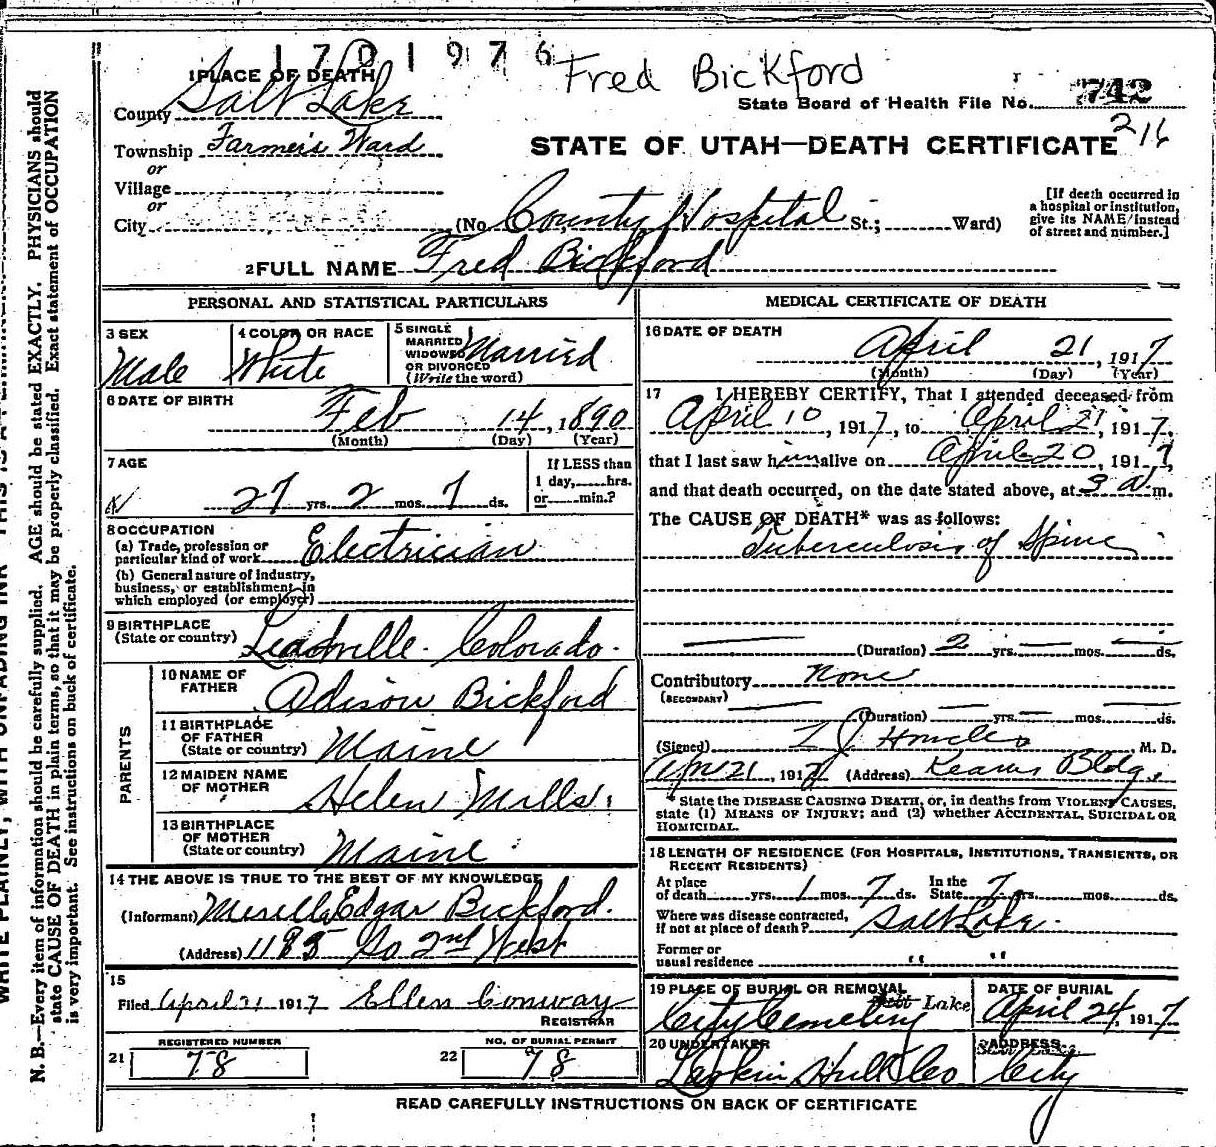 1701976
Fred Bickford
1 PLACE OF DEATH
County Salt Lake
State Board of Health File No. 742
216
Township Farmers Ward
or
Village
or
City
STATE OF UTAH—DEATH CERTIFICATE
(No. County Hospital St.; Ward)
[If death occurred in
a hospital or institution,
give its NAME instead
of street and number.]
2 FULL NAME Fred Bickford
PERSONAL AND STATISTICAL PARTICULARS
3 SEX
Male
4 COLOR OR RACE
White
5 SINGLE
MARRIED
WIDOWED
OR DIVORCED
(Write the word)
Married
6 DATE OF BIRTH
Feb 14, 1890
(Month) (Day) (Year)
7 AGE
27 yrs. 2 mos. 7 ds.
If LESS than
1 day, hrs.
or min.?
8 OCCUPATION
(a) Trade, profession or
particular kind of work Electrician
(b) General nature of industry,
business, or establishment in
which employed (or employer)
9 BIRTHPLACE
(State or country) Leadville. Colorado.
PARENTS
10 NAME OF
FATHER Adison Bickford
11 BIRTHPLACE
OF FATHER
(State or country) Maine
12 MAIDEN NAME
OF MOTHER Helen Mills.
13 BIRTHPLACE
OF MOTHER
(State or country) Maine.
14 THE ABOVE IS TRUE TO THE BEST OF MY KNOWLEDGE
(Informant) Edgar Bickford.
(Address) 1185 So 2nd West
15
Filed April 21 1917 Ellen Conway
REGISTRAR
REGISTERED NUMBER
21 78
NO. OF BURIAL PERMIT
22 78
MEDICAL CERTIFICATE OF DEATH
16 DATE OF DEATH
April 21, 1917
(Month) (Day) (Year)
17 I HEREBY CERTIFY, That I attended deceased from
April 10, 1917, to April 21, 1917,
that I last saw him alive on April 20, 1917,
and that death occurred, on the date stated above, at 3 a.m.
The CAUSE OF DEATH* was as follows:
Tuberculosis of Spine
(Duration) 2 yrs. mos. ds.
Contributory none
(SECONDARY)
(Duration) yrs. mos. ds.
(Signed) M. D.
Apr 21, 1917 (Address) Kearns Bldg.
* State the DISEASE CAUSING DEATH, or, in deaths from VIOLENT CAUSES,
state (1) MEANS OF INJURY; and (2) whether ACCIDENTAL, SUICIDAL OR
HOMICIDAL.
18 LENGTH OF RESIDENCE (FOR HOSPITALS, INSTITUTIONS, TRANSIENTS, OR
RECENT RESIDENTS)
At place
of death yrs. 1 mos. 7 ds.
In the
State 7 yrs. mos. ds.
Where was disease contracted,
If not at place of death? Salt Lake.
Former or
usual residence " "
19 PLACE OF BURIAL OR REMOVAL
Salt Lake
City Cemetery
DATE OF BURIAL
April 24, 1917
20 UNDERTAKER
Larkin Hull Co
ADDRESS
City
READ CAREFULLY INSTRUCTIONS ON BACK OF CERTIFICATE
N. B.—Every item of information should be carefully supplied. AGE should be stated EXACTLY. PHYSICIANS should
state CAUSE OF DEATH in plain terms, so that it may be properly classified. Exact statement of OCCUPATION
is very important. See instructions on back of certificate.